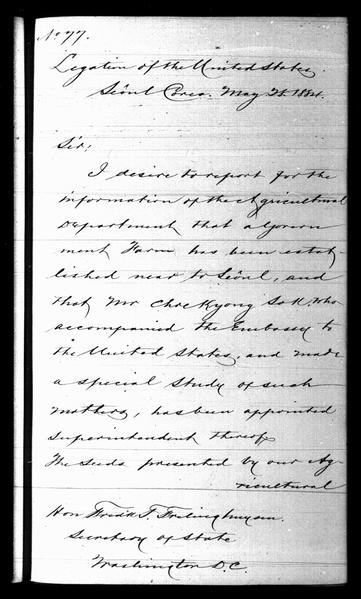 No 77.
Legation of the United States.
Séoul Corea. May 21. 1884.
Sir;
I desire to report for the
information of the Agricultural
Department that a Govern
ment Farm has been estab-
lished near to Séoul, and
that Mr Choe Kyong Sok, who
accompanied the Embassy to
the United States, and made
a special study of such
matters, has been appointed
Superintendent thereof.
The seeds presented by our Ag-
ricultural
Hon Fredk T. Frelinghuysen.
Secretary of State
Washington D.C.